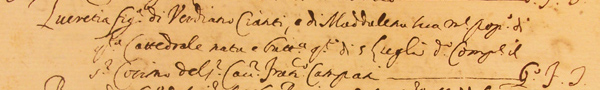 Lucretia fig.a di Verdiano Cianti, e di Maddalena sua m.e pop.o di
q.ta Cattedrale nata e batt.a q.o di 5 Luglio d.o Comp.e il
S.r Cosimo del S.r Cau.r Fran.o Campani G. F. J.